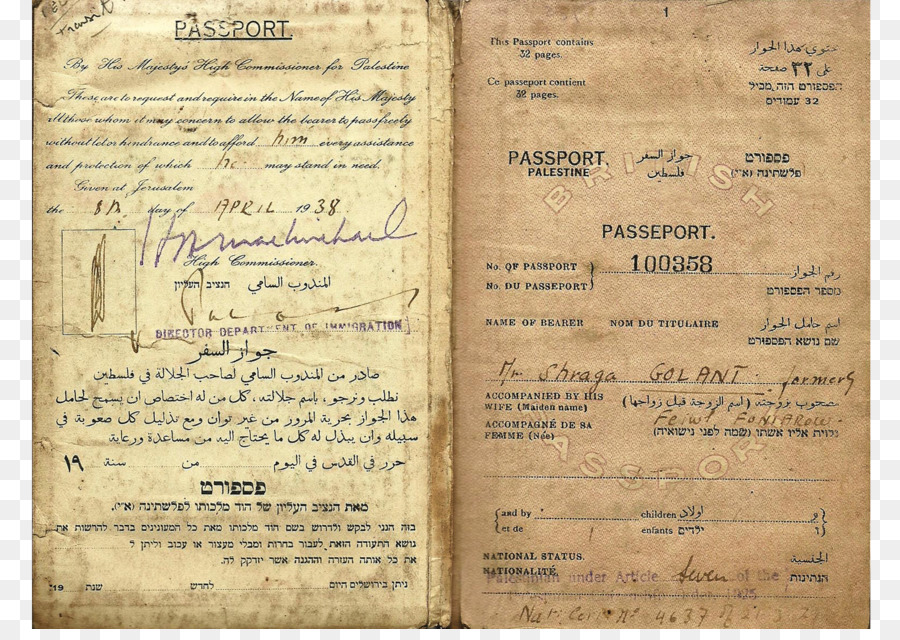 transit
PASSPORT.
By His Majesty's High Commissioner for Palestine
These are to request and require in the Name of His Majesty
all those whom it may concern to allow the bearer to pass freely
without let or hindrance and to afford him every assistance
and protection of which he may stand in need.
Given at Jerusalem
the 8th day of APRIL 1938
High Commissioner.
المندوب السامي הנציב העליון
DIRECTOR DEPARTMENT OF IMMIGRATION
جواز السفر
صادر من المندوب السامي لصاحب الجلالة في فلسطين
نطلب ونرجو، باسم جلالته، كل من له اختصاص ان يسمح لحامل
هذا الجواز بحرية المرور من غير توان ومع تذليل كل صعوبة في
سبيله وان يبذل له كل ما يحتاج اليه من مساعدة ورعاية
حرر في القدس في اليوم من سنة ١٩
פספורט
מאת הנציב העליון של הוד מלכותו לפלשתינה (א״י).
בזה הנני לבקש ולדרוש בשם הוד מלכותו מאת כל המעונינים בדבר להרשות את
נושא התעודה הזאת לעבור בחרות ומבלי מעצור או עכוב וליתן ל
את כל אותה העזרה וההגנה אשר יזדקק לה.
ניתן בירושלים היום לחדש שנת 19
1
This Passport contains
32 pages.
Ce passeport contient
32 pages.
يحتوي هذا الجواز
على ٣٢ صفحة
הפספורט הזה מכיל
32 עמודים
BRITISH
PASSPORT. جواز السفر פספורט
PALESTINE فلسطين פלשתינה (א״י)
PASSEPORT.
No. OF PASSPORT 100358 رقم الجواز
No. DU PASSEPORT מספר הפספורט
NAME OF BEARER NOM DU TITULAIRE اسم حامل الجواز
שם נושא הפספורט
Mr Shraga GOLANT formerly
ACCOMPANIED BY HIS
WIFE (Maiden name)
مصحوب بزوجته (اسم الزوجة قبل زواجها)
ACCOMPAGNÉ DE SA
FEMME (Née)
נלוית אליו אשתו (שמה לפני נישואיה)
PASSPORT
and by children اولاد و
et de enfants ילדים ו
NATIONAL STATUS. الجنسية
NATIONALITÉ. הנתינות
Palestinian under Article Seven of the
Nat. Cert. No 4637